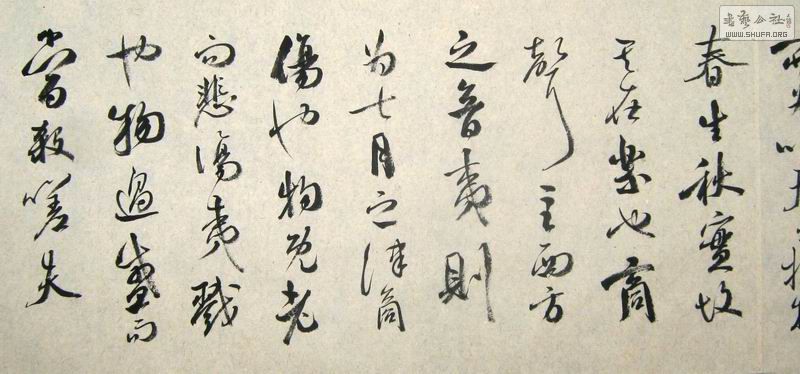 春生秋實故
其在樂也商
聲主西方
之音夷則
為七月之律商
傷也物既老
而悲傷夷戮
也物過盛而
當殺嗟夫
書藝公社
WWW.SHUFA.ORG